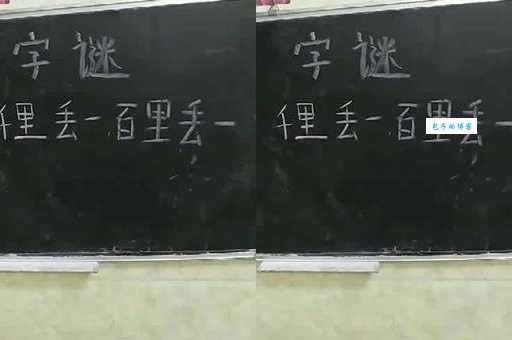 字谜
千里丢一百里丢一
字谜
千里丢一百里丢一
的博客